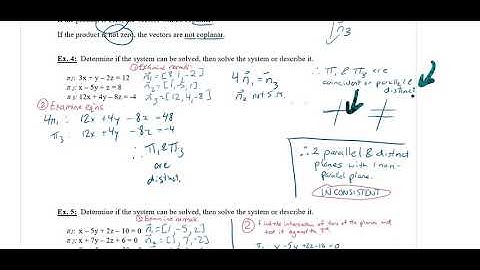 If the product is not zero, the vectors are not coplanar.
n₃
Ex. 4: Determine if the system can be solved, then solve the system or describe it.
① Examine normals
π₁: 3x + y – 2z = 12 n₁ = [3, 1, -2]
π₂: x – 5y + z = 8 n₂ = [1, -5, 1]
π₃: 12x + 4y – 8z = -4 n₃ = [12, 4, -8]
4n₁ = n₃
n₂ not S.M.
∴ π₁ & π₃ are
coincident or parallel &
distinct
② Examine eqns
4π₁: 12x + 4y - 8z = 48
π₃: 12x + 4y - 8z = -4
∴ π₁ & π₃
are
distinct.
∴ 2 parallel & distinct
planes with 1 non-
parallel plane.
INCONSISTENT
Ex. 5: Determine if the system can be solved, then solve the system or describe it.
① Examine normals
x – 5y + 2z – 10 = 0 n₁ = [1, -5, 2]
x + 7y – 2z + 6 = 0 n₂ = [1, 7, -2]
② Find the intersection of two of the planes and
test it against the 3rd
π₁ x - 5y + 2z - 10 = 0